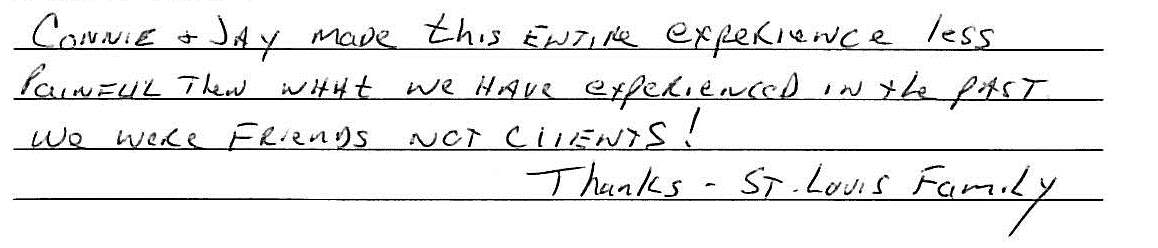 Connie & Jay made this entire experience less
painful then what we have experienced in the past
We were friends not clients!
Thanks - St. Louis Family